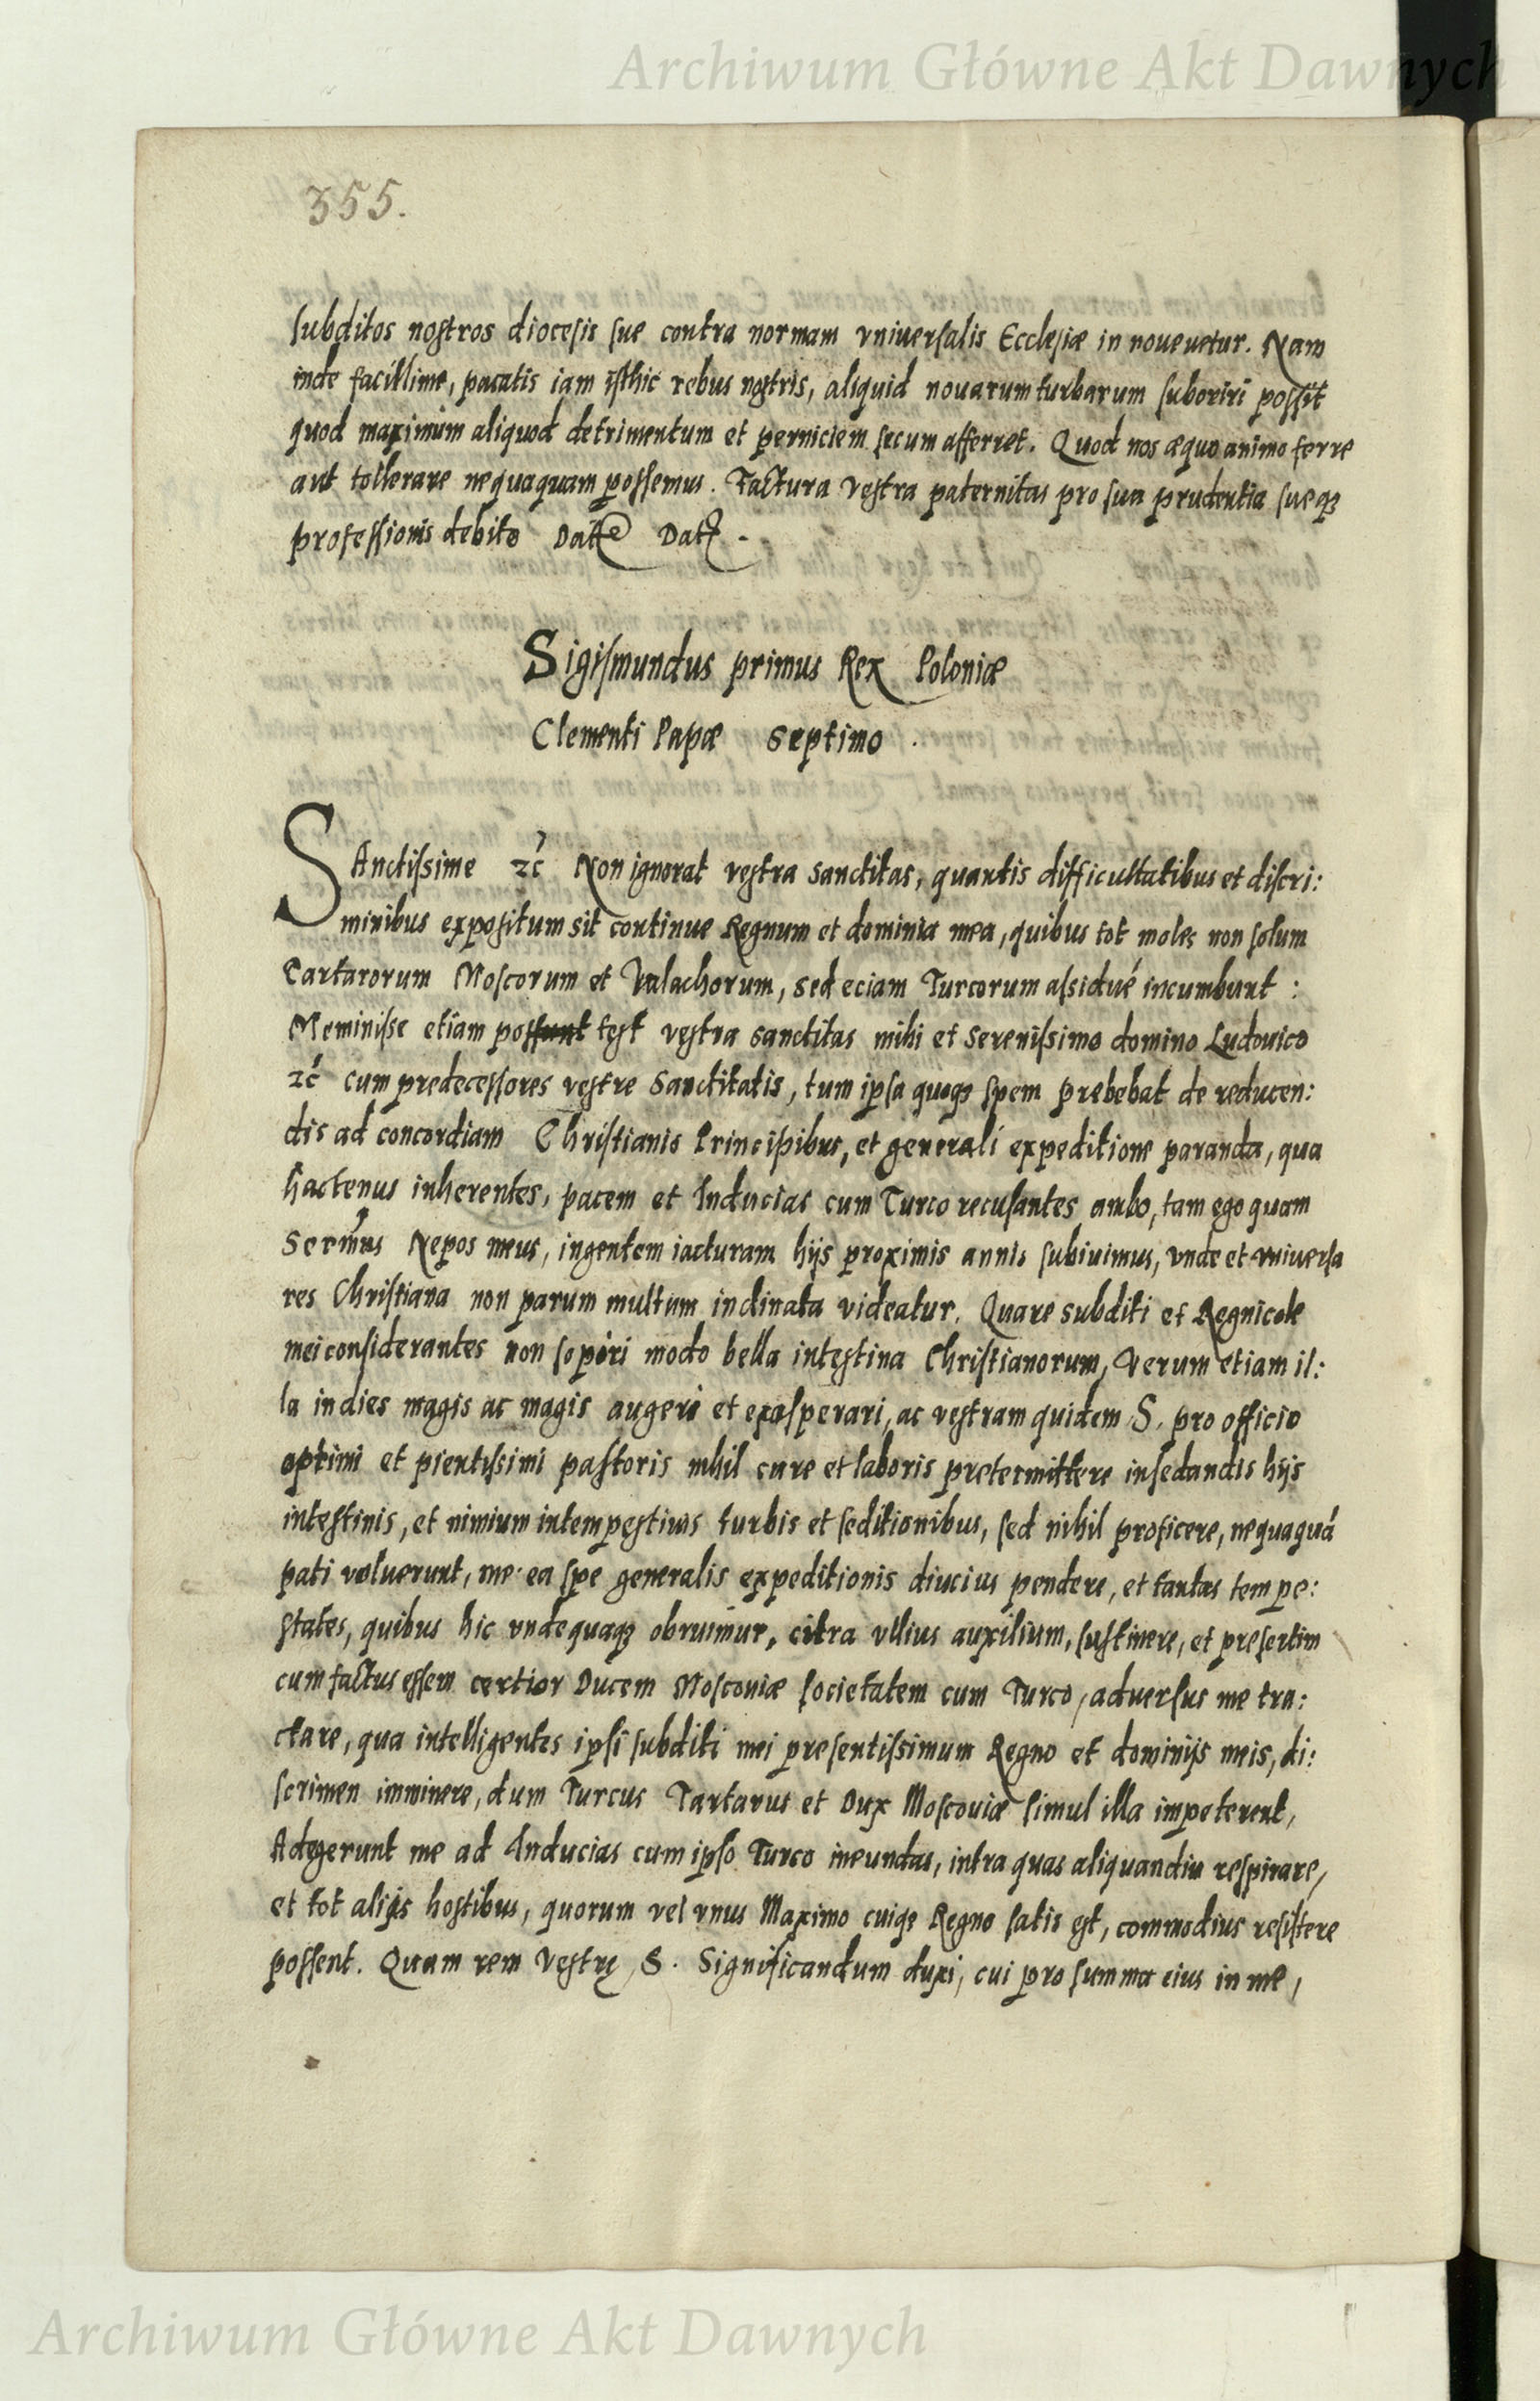 Archiwum Główne Akt Dawnych
355.
subditos nostros diocesis sue contra normam vniuersalis Ecclesiæ in noueuetur. Nam
inde facillime, pacatis iam isthic rebus nostris, aliquid nouarum turbarum suboriri possit
quod maximum aliquod detrimentum et perniciem secum afferret. Quod nos æquo animo ferre
aut tollerare nequaquam possemus. Factura vestra paternitas pro sua prudentia sueq3
professionis debito Datt Datt -
Sigismundus primus Rex Poloniæ
Clementi Papæ septimo.
SAnctissime 2c Non ignorat vestra sanctitas, quantis difficultatibus et discri:
minibus expositum sit continue Regnum et dominia mea, quibus tot moles non solum
Tartarorum Moscorum et Valachorum, sed eciam Turcorum assidué incumbunt :
Meminisse etiam possunt test vestra sanctitas mihi et serenissimo domino Ludouico
2c cum predecessores vestre Sanctitatis, tum ipsa quoq3 spem prebebat de reducen:
dis ad concordiam Christianis Principibus, et generali expeditione paranda, qua
hactenus inherentes, pacem et Inducias cum Turco recusantes ambo, tam ego quam
Sermus Nepos meus, ingentem iacturam hijs proximis annis subiuimus, vnde et vniuersa
res Christiana non parum multum inclinata videatur. Quare subditi et Regnicole
mei considerantes non sopiri modo bella intestina Christianorum, Verum etiam il:
la indies magis ac magis augeri et exasperari, ac vestram quidem S. pro officio
optimi et pientissimi pastoris nihil cure et laboris pretermittere in sedandis hijs
intestinis, et nimium intempestiuis turbis et seditionibus, sed nihil proficere, nequaquá
pati voluerunt, me ea spe generalis expeditionis diucius pendere, et tantas tempe:
states, quibus hic vndequaq3 obruimur, citra vllius auxilium, sustinere, et presertim
cum factus essem certior Ducem Moscouiæ societatem cum Turco, aduersus me tra:
ctare, qua intelligentes ipsi subditi mei presentissimum Regno et dominijs meis, di:
scrimen imminere, dum Turcus Tartarus et Dux Moscouiæ simul illa impeterent,
Adegerunt me ad Inducias cum ipso Turco ineundas, intra quas aliquandiu respirare,
et tot alijs hostibus, quorum vel vnus Maximo cuiq3 Regno satis est, commodius resistere
possent. Quam rem Vestrę S. Significandum duxi, cui pro summa eius in me,
Archiwum Główne Akt Dawnych